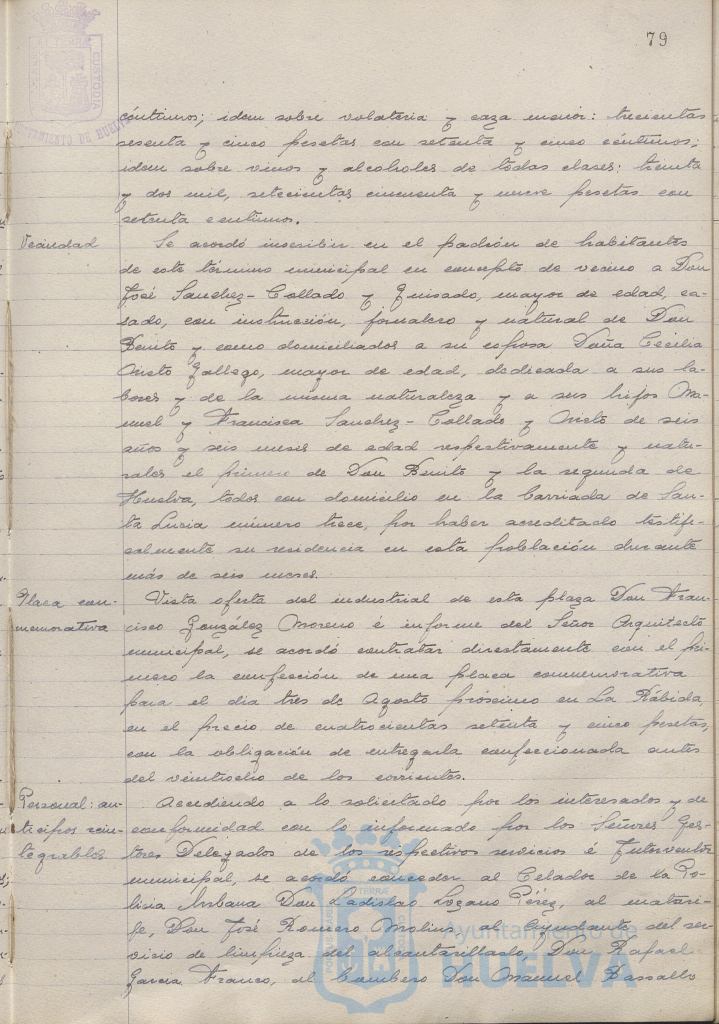 79
céntimos; idem sobre volateria y caza menor: trecientas
sesenta y cinco pesetas con setenta y cinco céntimos;
idem sobre vinos y alcoholes de todas clases: treinta
y dos mil, setecientas cincuenta y nueve pesetas con
setenta centimos.
Vecindad
Se acordó inscribir en el padrón de habitantes
de este término municipal en concepto de vecino a Don
José Sanchez-Collado y Quisado, mayor de edad, ca-
sado, con instrucción, jornalero y natural de Don
Benito y como domiciliados a su esposa Doña Cecilia
Nieto Gallego, mayor de edad, dedicada a sus la-
bores y de la misma naturaleza y a sus hijos Ma-
nuel y Francisca Sanchez-Collado y Nieto de seis
años y seis meses de edad respectivamente y natu-
rales el primero de Don Benito y la segunda de
Huelva, todos con domicilio en la barriada de San-
ta Lucia número trece, por haber acreditado testifi-
calmente su residencia en esta población durante
más de seis meses.
Placa con-
memorativa
Vista oferta del industrial de esta plaza Don Fran-
cisco González Moreno é informe del Señor Arquitecto
municipal, se acordó contratar directamente con el pri-
mero la confección de una placa conmemorativa
para el dia tres de Agosto próximo en La Rábida,
en el precio de cuatrocientas setenta y cinco pesetas,
con la obligación de entregarla confeccionada antes
del veintiocho de los corrientes.
Personal: an-
ticipos rein-
tegrables
Accediendo a lo solicitado por los interesados y de
conformidad con lo informado por los Señores Ges-
tores Delegados de los respectivos servicios é Interventor
municipal, se acordó conceder al Celador de la Po-
licia Urbana Don Ladislao Lozano Pérez, al matari-
fe, Don José Romero Molina, al Ayudante del ser-
vicio de limpieza del alcantarillado, Don Rafael
Garcia Franco, al bombero Don Manuel Vassallo
Ayuntamiento de
HUELVA